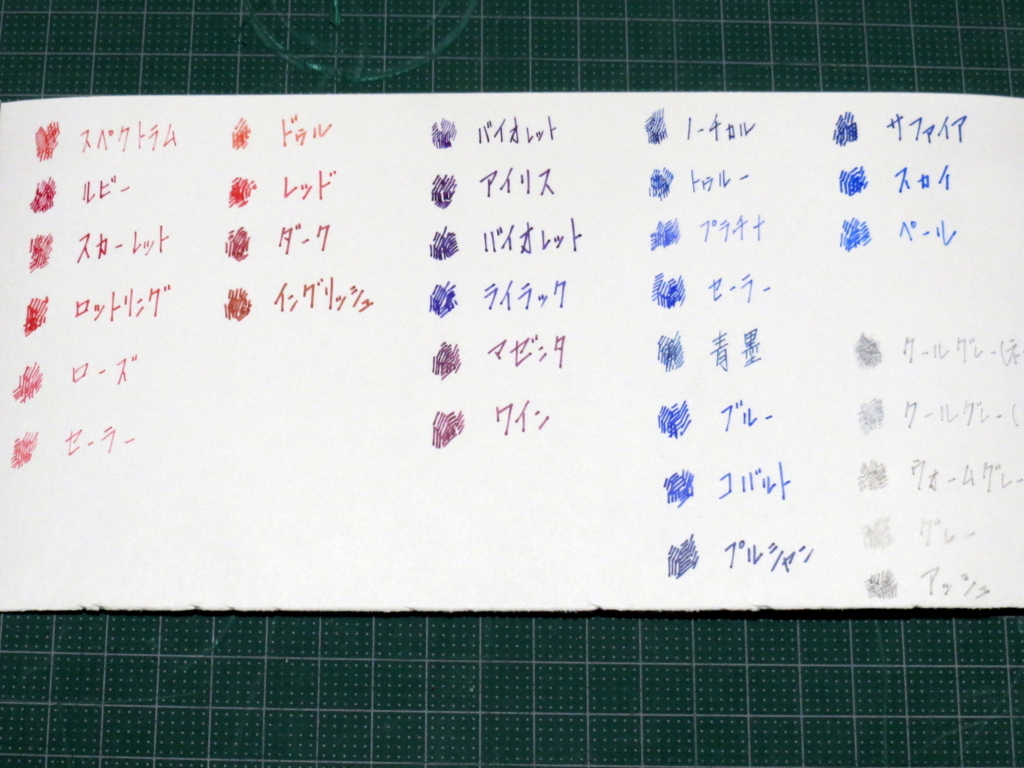 スペクトラム
ルビー
スカーレット
ロットリング
ローズ
セーラー
ドゥル
レッド
ダーク
イングリッシュ
バイオレット
アイリス
バイオレット
ライラック
マゼンタ
ワイン
ノーチカル
トゥルー
プラチナ
セーラー
青墨
ブルー
コバルト
プルシャン
サファイア
スカイ
ペール
クールグレー(
クールグレー(
ウォームグレー
グレー
アッシュ